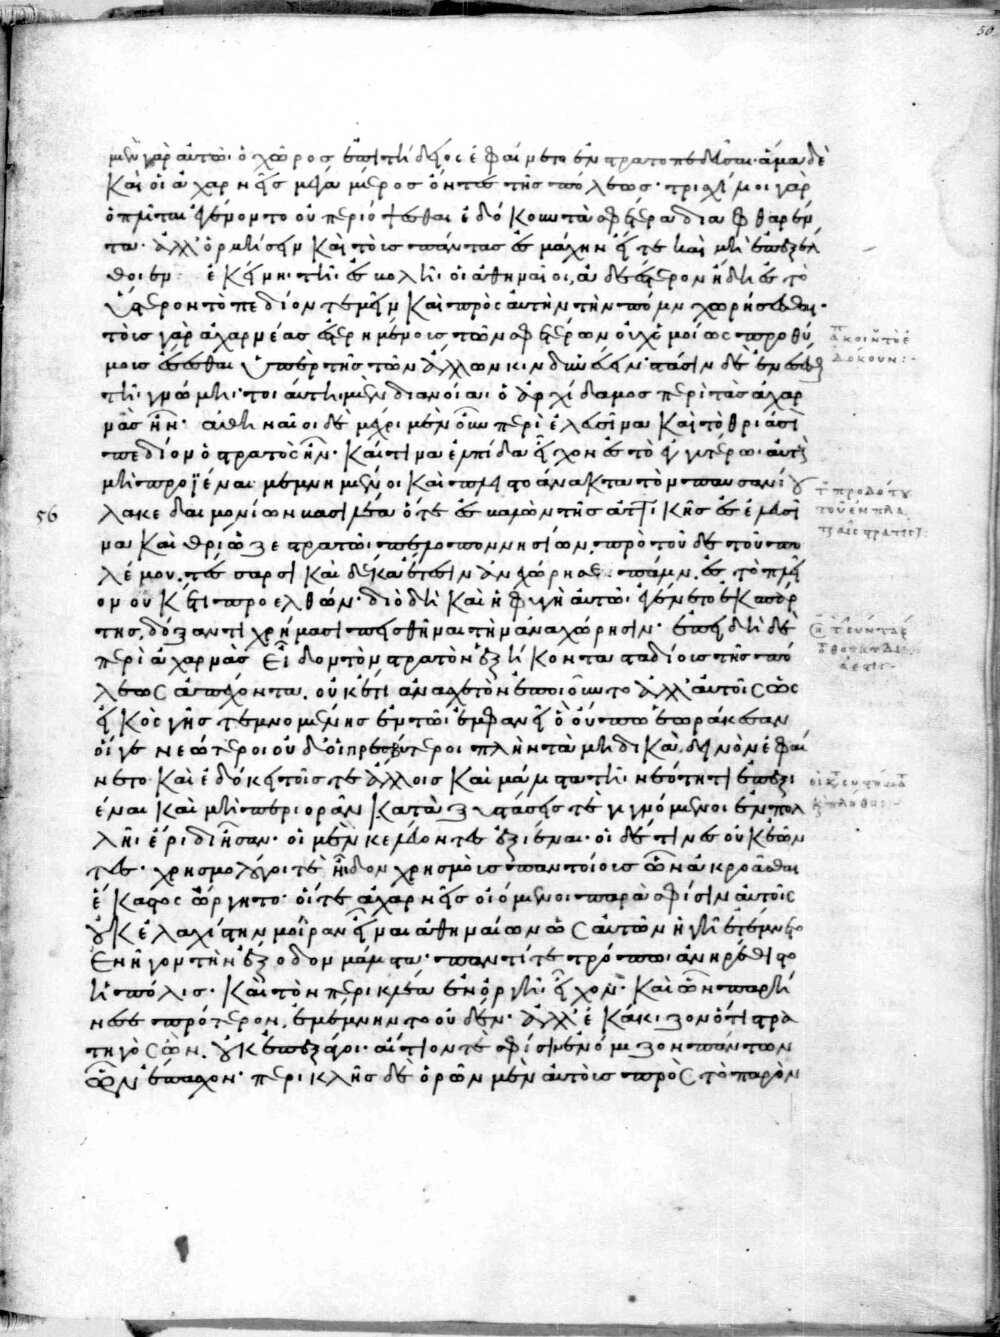 50
μὲν γὰρ αὐτῶι ὁ χῶρος ἐπιτήδειος ἐφαίνετο ἐνστρατοπεδεῦσαι· ἅμα δὲ
καὶ οἱ ἀχαρνῆς μέγα μέρος ὄντες τῆς πόλεως· τρισχίλιοι γὰρ
ὁπλῖται ἐγένοντο οὐ περιόψεσθαι ἐδόκουν τὰ σφέτερα διαφθαρέν
τα· ἀλλ' ὁρμήσειν καὶ τοὺς πάντας ἐς μάχην· εἴ τε καὶ μὴ ἐπεξέλ
θοιεν ἐκείνηι τῆι ἐσβολῆι οἱ ἀθηναῖοι, ἀδεέστερον ἤδη ἐς τὸ
ὕστερον τὸ πεδίον τεμεῖν καὶ πρὸς αὐτὴν τὴν πόλιν χωρήσεσθαι·
τοὺς γὰρ ἀχαρνέας ἐστερημένους τῶν σφετέρων οὐχ ὁμοίως προθύ
μους ἔσεσθαι ὑπὲρ τῆς τῶν ἄλλων κινδυνεύειν· στάσιν δὲ ἐνέσεσθαι
τῆι γνώμηι· τοιαύτηι μὲν διανοίαι ὁ ἀρχίδαμος περὶ τὰς ἀχαρ
νὰς ἦν· ἀθηναῖοι δὲ μέχρι μὲν οὗ περὶ ἐλευσῖνα καὶ τὸ θριάσι
πεδίον ὁ στρατὸς ἦν· καί τινα ἐλπίδα εἶχον ἐς τὸ ἐγγυτέρω αὐτοὺς
μὴ προϊέναι· μεμνημένοι καὶ πλειστοάνακτα τὸν παυσανίου
56 λακεδαιμονίων βασιλέα ὅτε ἐσβαλὼν τῆς ἀττικῆς ἐς ἐλευσῖ
να καὶ θριῶζε στρατῶι πελοποννησίων, πρὸ τοῦδε τοῦ πο
λέμου τέσσαρσι καὶ δέκα ἔτεσιν ἀνεχώρησε πάλιν ἐς τὸ πλεῖ
ον οὐκέτι προελθών· διὸ δὴ καὶ ἡ φυγὴ αὐτῶι ἐγένετο ἐκ σπάρ
της, δόξαντι χρήμασι πεισθῆναι τὴν ἀναχώρησιν· ἐπειδὴ δὲ
περὶ ἀχαρνὰς εἶδον τὸν στρατὸν ἑξήκοντα σταδίους τῆς πό
λεως ἀπέχοντα, οὐκέτι ἀνασχετὸν ἐποιοῦντο ἀλλ' αὐτοῖς ὡς
εἰκὸς γῆς τεμνομένης ἐν τῶι ἐμφανεῖ ὃ οὔπω ἑωράκεσαν
οἵ γε νεώτεροι οὐδ' οἱ πρεσβύτεροι πλὴν τὰ μηδικὰ, δεινὸν ἐφαί
νετο καὶ ἐδόκει τοῖς τε ἄλλοις καὶ μάλιστα τῆι νεότητι ἐπεξι
έναι καὶ μὴ περιορᾶν κατὰ ξυστάσεις τε γιγνόμενοι ἐν πολ
λῆι ἔριδι ἦσαν· οἱ μὲν κελεύοντες ἐξιέναι· οἱ δέ τινες οὐκ ἐῶν
τες· χρησμολόγοι τὲ ἦιδον χρησμοὺς παντοίους ὧν ἀκροᾶσθαι
ἕκαστος ὥργητο· οἵ τε ἀχαρνῆς οἰόμενοι παρὰ σφίσιν αὐτοῖς
οὐκ ἐλαχίστην μοῖραν εἶναι ἀθηναίων ὡς αὐτῶν ἡ γῆ ἐτέμνετο
ἐνῆγον τὴν ἔξοδον μάλιστα· παντί τε τρόπωι ἀνηρέθιστο
ἡ πόλις· καὶ τὸν περικλέα ἐν ὀργῆι εἶχον· καὶ ὧν παρήι
νεσε πρότερον, ἐμέμνηντο οὐδέν· ἀλλ' ἐκάκιζον ὅτι στρα
τηγὸς ὢν, οὐκ ἐπεξάγοι· αἴτιόν τε σφίσιν ἐνόμιζον πάντων
ὧν ἔπασχον· περικλῆς δὲ ὁρῶν μὲν αὐτοὺς πρὸς τὸ παρὸν